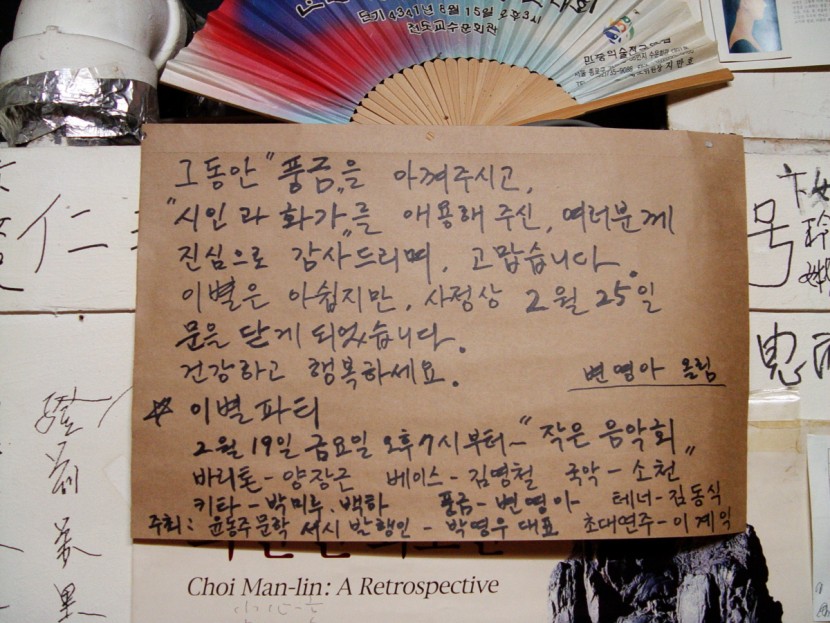 단기 4341년 8월 15일 오후3시
천도교수운회관
그동안 "풍금"을 아껴주시고,
"시인과 화가"를 애용해 주신, 여러분께
진심으로 감사드리며, 고맙습니다.
이별은 아쉽지만, 사정상 2월 25일
문을 닫게 되었습니다.
건강하고 행복하세요.
변영아 올림
☆ 이별파티
2월 19일 금요일 오후7시부터~ "작은 음악회"
바리톤-양장근 베이스-김명철 국악-소천
키타-박미루.백하 풍금-변영아 테너-김동식
주최: 윤동주문학 서시 발행인-박영우 대표 초대연주-이계익
Choi Man-lin: A Retrospective
仁
号
思